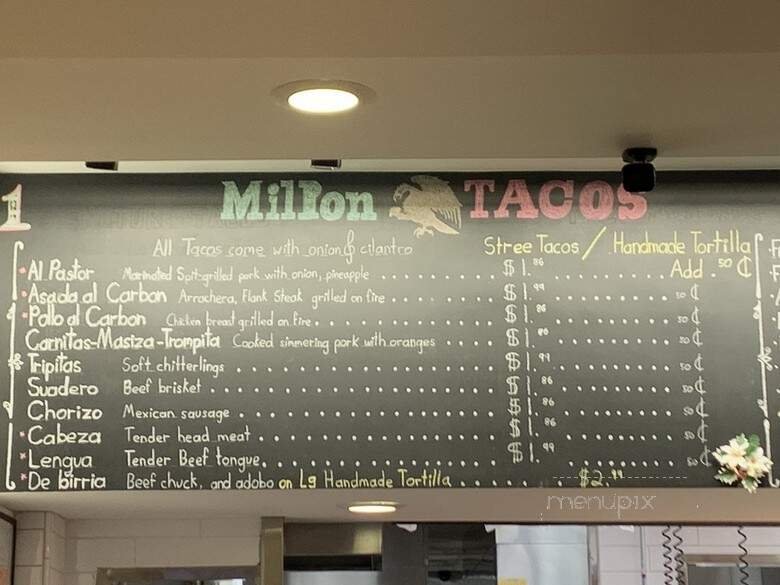 1
Millon TACOS
All Tacos come with onion & cilantro Stree Tacos / Handmade Tortilla
*Al Pastor Marinated Spit-grilled pork with onion, pineapple $1.86 Add 50¢
*Asada al Carbon Arrachera, Flank Steak grilled on fire $1.99 50¢
*Pollo al Carbon Chicken breast grilled on fire $1.86 50¢
Carnitas-Masiza-Trompita Cooked simmering pork with oranges $1.86 50¢
Tripitas Soft chitterlings $1.99 50¢
Suadero Beef brisket $1.86 50¢
Chorizo Mexican sausage $1.86 50¢
*Cabeza Tender head meat $1.86 50¢
*Lengua Tender Beef tongue $1.99 50¢
*De birria Beef chuck, and adobo on Lg Handmade Tortilla $2.99
menupix